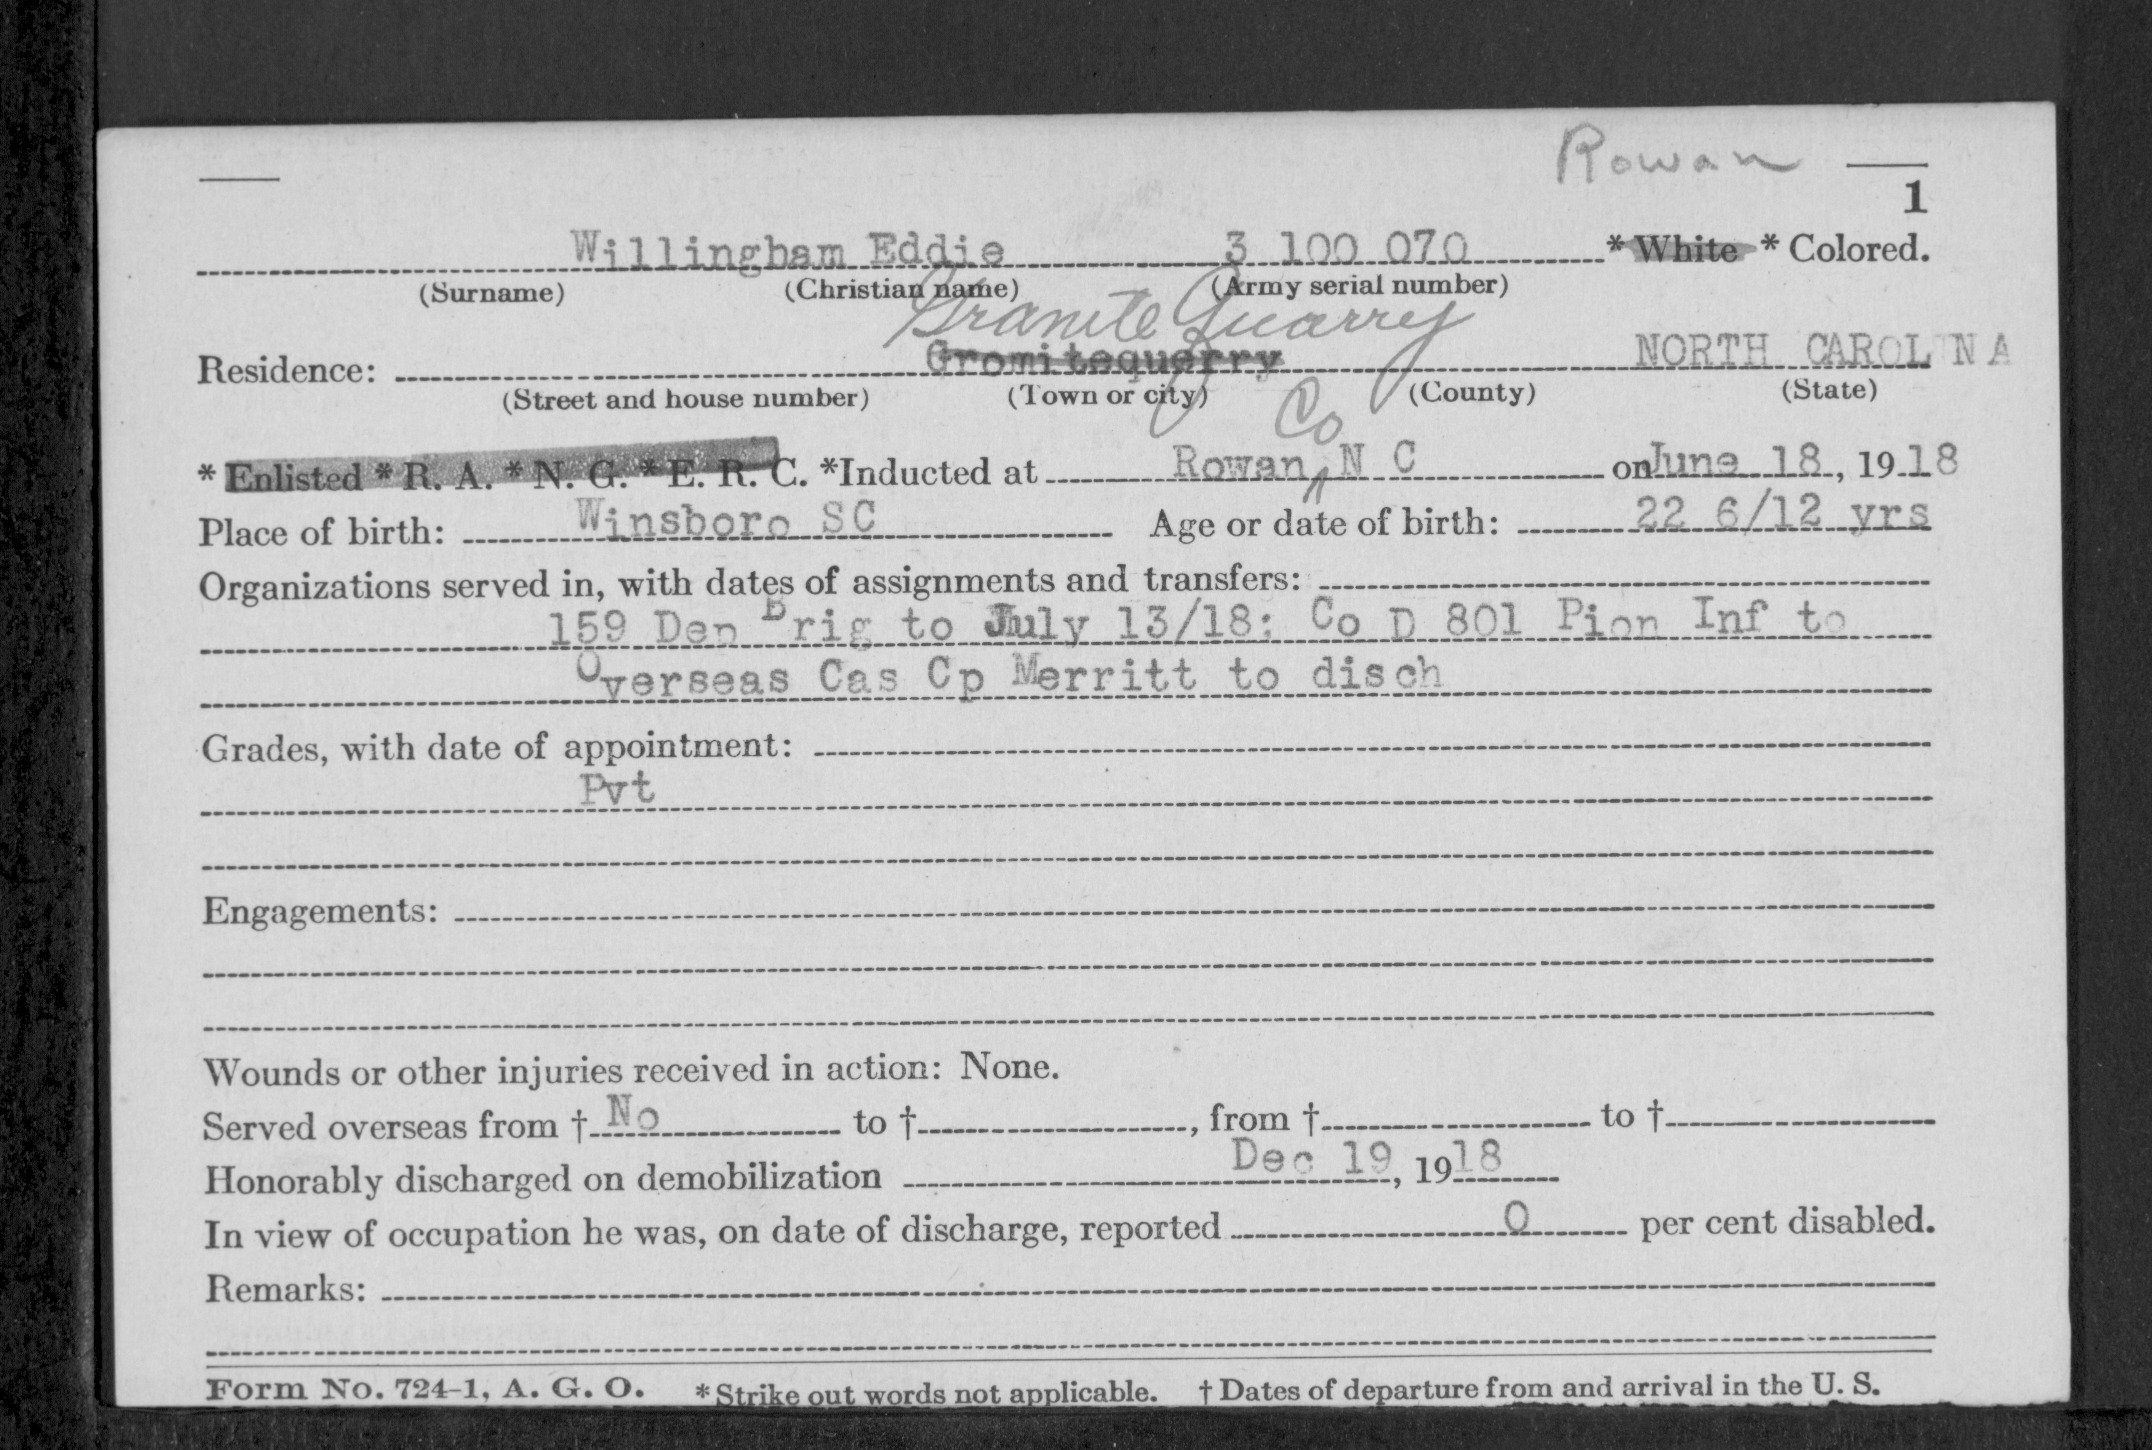 Rowan
1
Willingham Eddie 3 100 070 * White * Colored.
(Surname) (Christian name) (Army serial number)
Granite Quarry
Residence: Gromitequerry NORTH CAROL NA
(Street and house number) (Town or city) (County) (State)
Co
* Enlisted * R. A. * N. G. * E. R. C. *Inducted at Rowan, N C on June 18, 1918
Place of birth: Winsboro SC Age or date of birth: 22 6/12 yrs
Organizations served in, with dates of assignments and transfers:
159 Dep Brig to July 13/18; Co D 801 Pion Inf to
Overseas Cas Cp Merritt to disch
Grades, with date of appointment:
Pvt
Engagements:
Wounds or other injuries received in action: None.
Served overseas from † No to †, from † to †
Honorably discharged on demobilization Dec 19, 1918
In view of occupation he was, on date of discharge, reported 0 per cent disabled.
Remarks:
Form No. 724-1, A. G. O. * Strike out words not applicable. † Dates of departure from and arrival in the U. S.